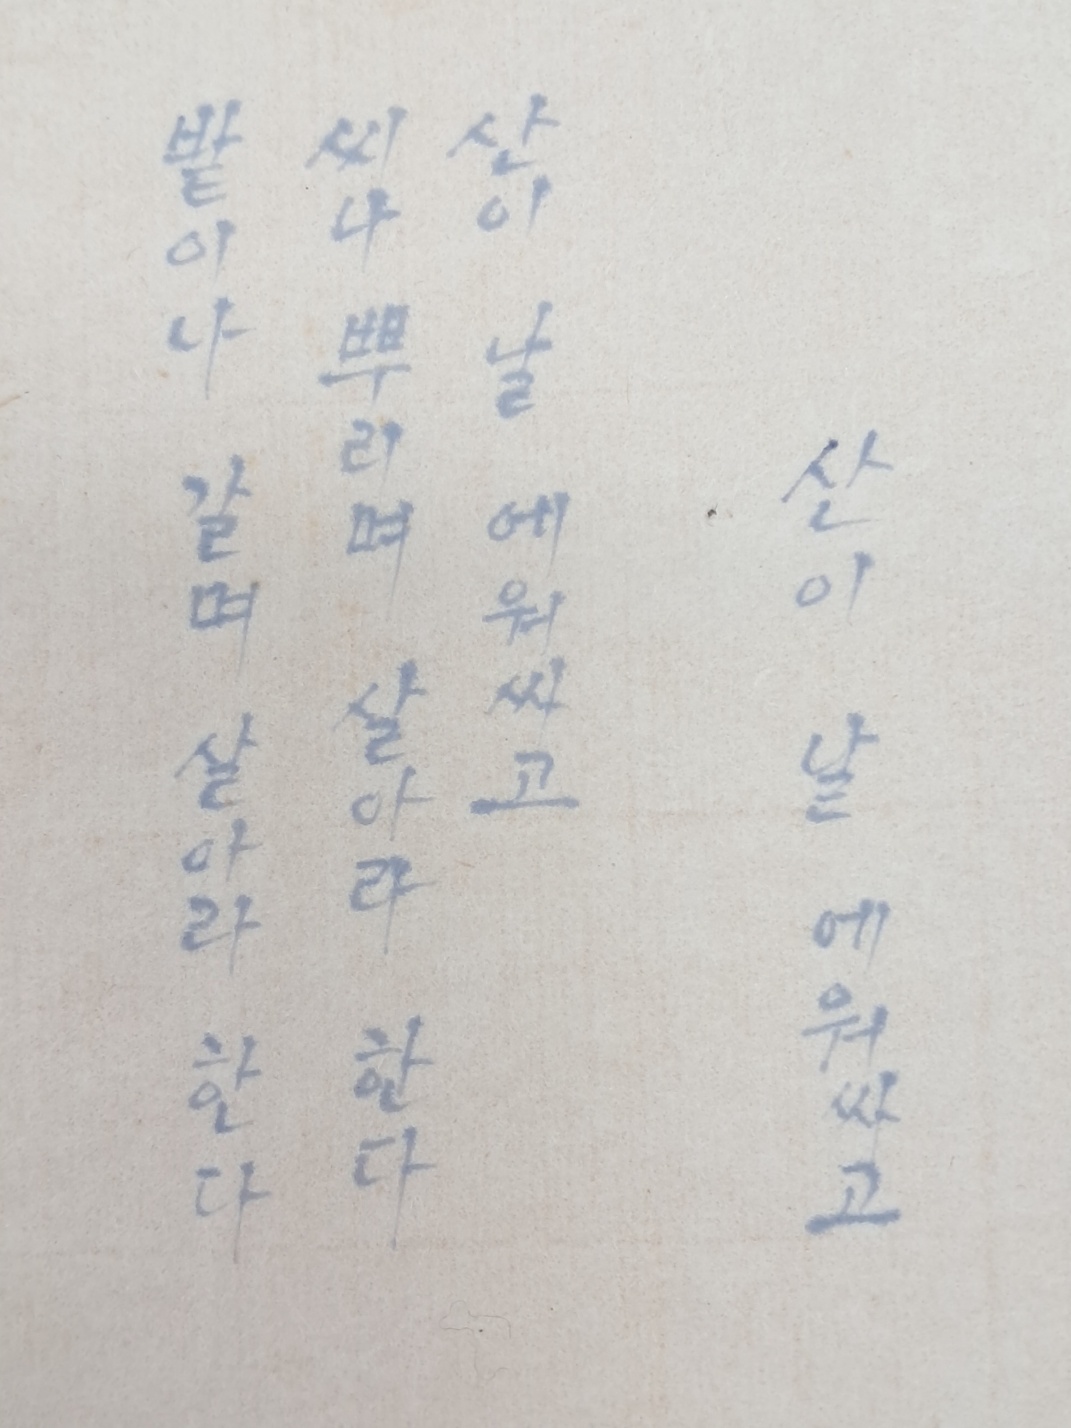 산이 날 에워싸고
산이 날 에워싸고
씨나 뿌리며 살아라 한다
밭이나 갈며 살아라 한다